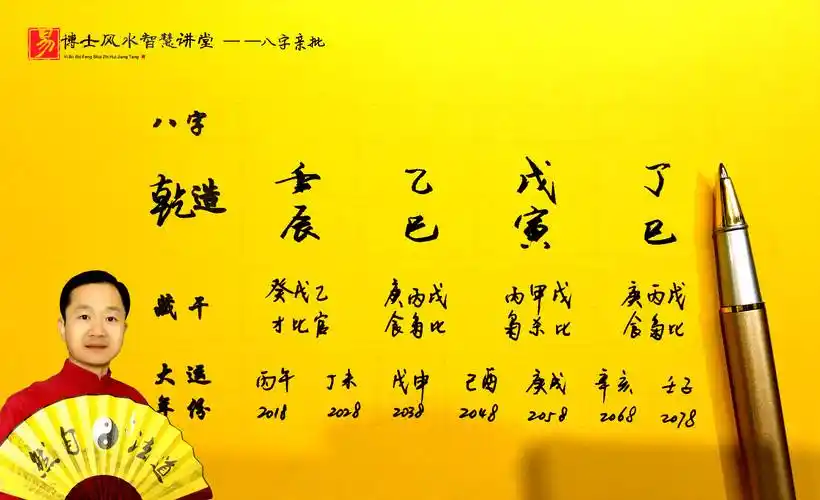 易 博士风水智慧讲堂 ——八字亲批
Yi Bo Shi Feng Shui Zhi Hui Jiang Tang
八字
乾造 壬 乙 戊 丁
辰 巳 寅 巳
藏干 癸戊乙 庚丙戊 丙甲戊 庚丙戊
才比官 食枭比 枭杀比 食枭比
大运 丙午 丁未 戊申 己酉 庚戌 辛亥 壬子
年份 2018 2028 2038 2048 2058 2068 2078
然自法道